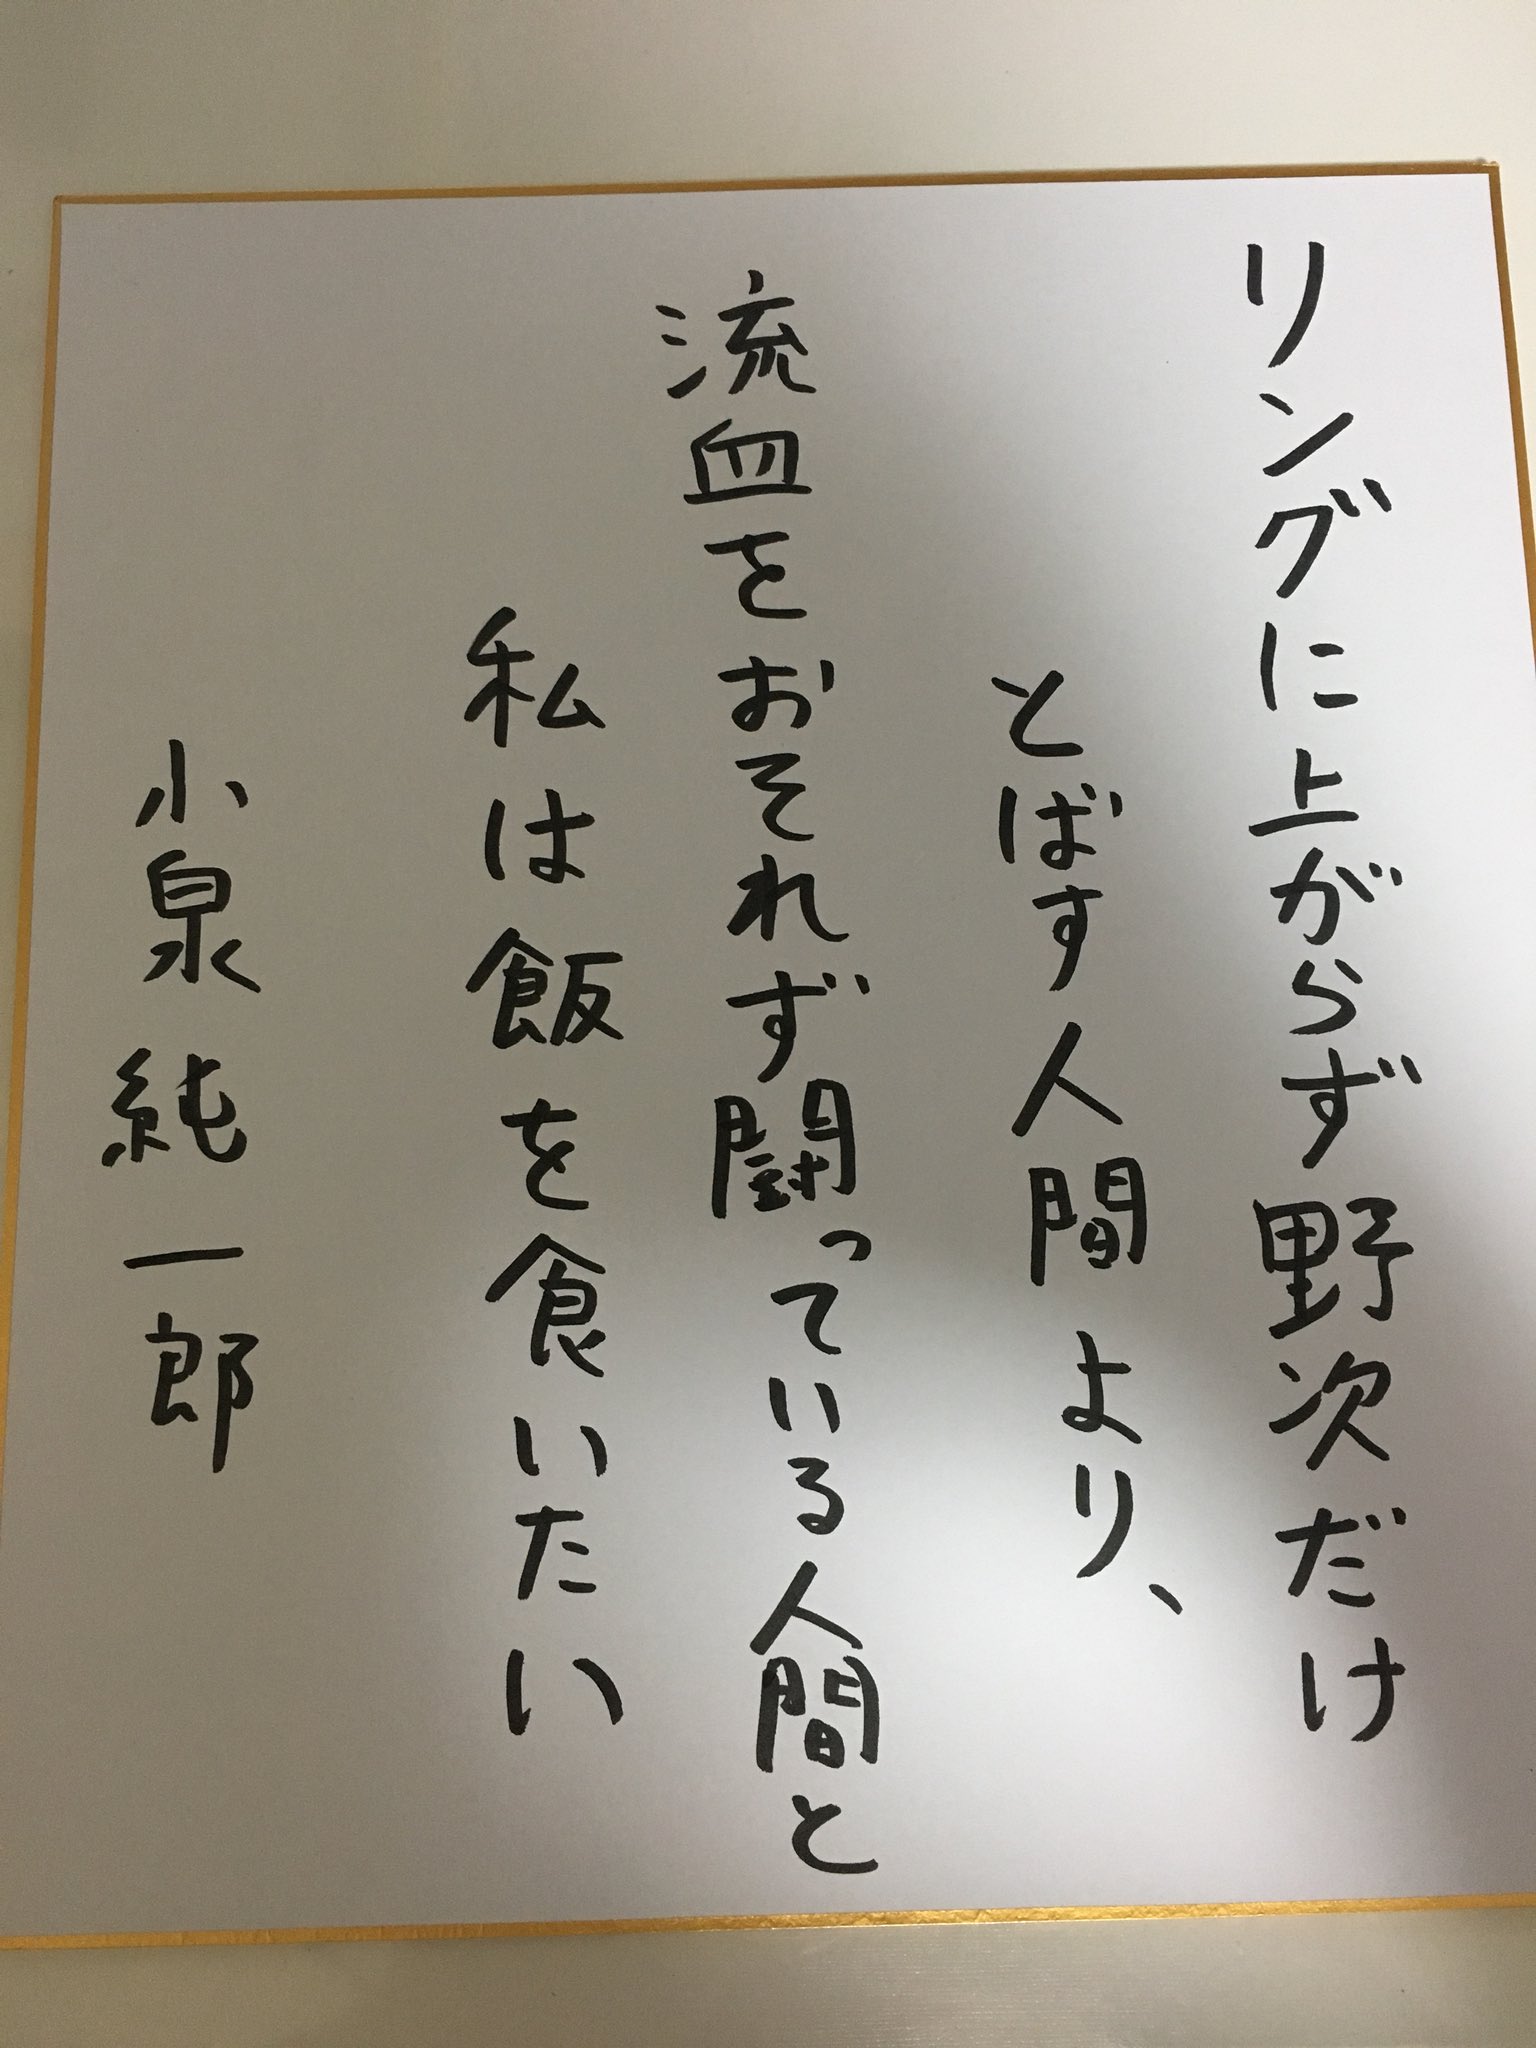 リングに上がらず野次だけ
とばす人間より、
流血をおそれず闘っている人間と
私は飯を食いたい
小泉純一郎